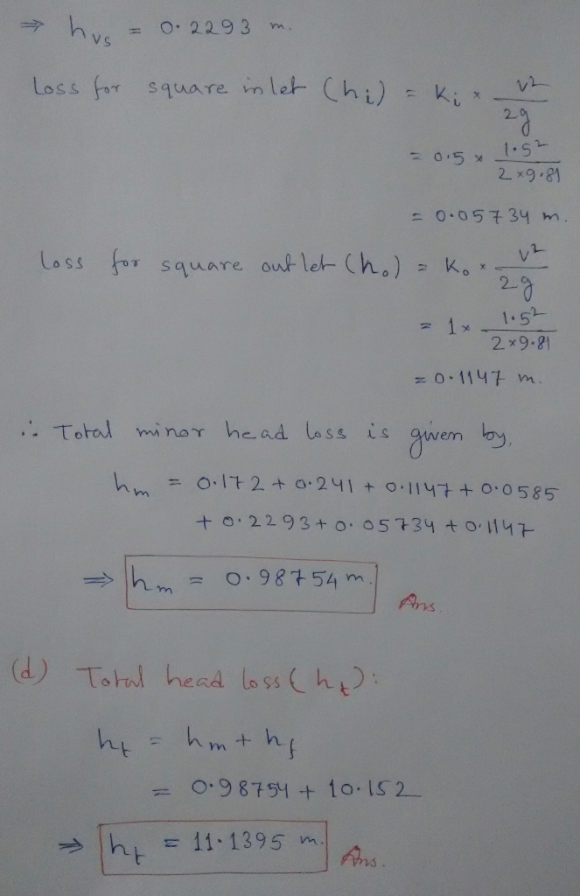 ⇒ hvs = 0.2293 m.
Loss for square inlet (hi) = Ki × v²/2g
= 0.5 × 1.5²/2×9.81
= 0.05734 m.
Loss for square outlet (ho) = Ko × v²/2g
= 1× 1.5²/2×9.81
= 0.1147 m.
∴ Total minor head loss is given by,
hm = 0.172 + 0.241 + 0.1147 + 0.0585
+ 0.2293 + 0.05734 + 0.1147
⇒ hm = 0.98754 m. Ans.
(d) Total head loss (ht):
ht = hm + hf
= 0.98754 + 10.152
⇒ ht = 11.1395 m. Ans.